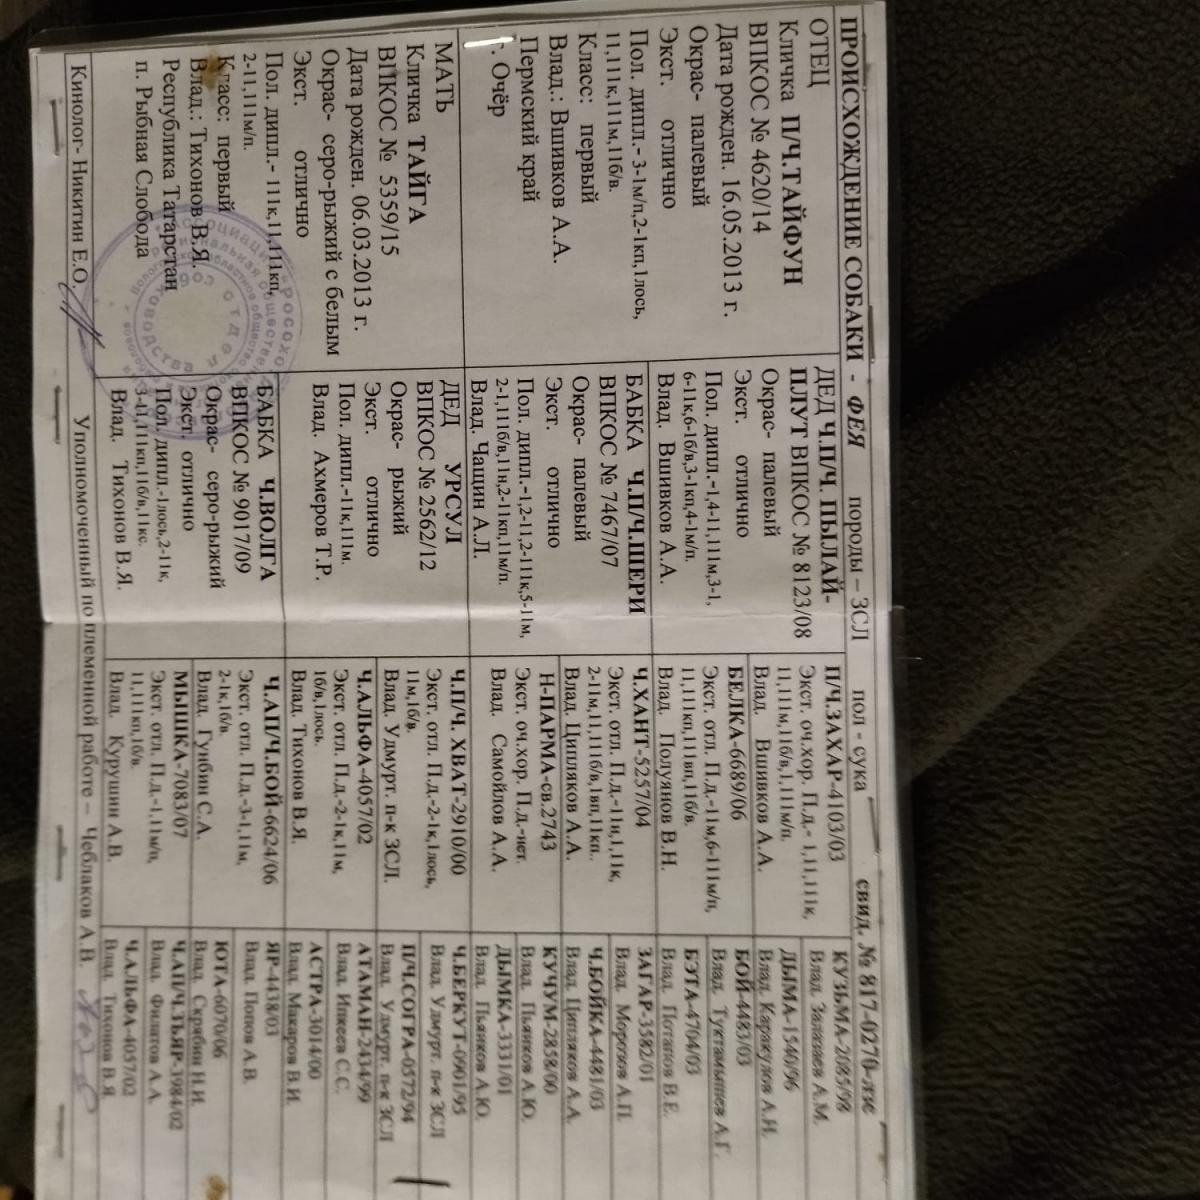 ПРОИСХОЖДЕНИЕ СОБАКИ - ФЕЯ породы – ЗСЛ пол - сука свид. № 817-0270-лзс
ОТЕЦ
Кличка П/Ч.ТАЙФУН
ВПКОС № 4620/14
Дата рожден. 16.05.2013 г.
Окрас- палевый
Экст. отлично
Пол. дипл.- 3-1м/п,2-1кп,1лось,
11,111к,111м,11б/в.
Класс: первый
Влад.: Вшивков А.А.
Пермский край
г. Очёр
МАТЬ
Кличка ТАЙГА
ВПКОС № 5359/15
Дата рожден. 06.03.2013 г.
Окрас- серо-рыжий с белым
Экст. отлично
Пол. дипл.- 11к,11,111кп,
2-11,111м/п.
Класс: первый
Влад.: Тихонов В.Я.
Республика Татарстан
п. Рыбная Слобода
ДЕД Ч.П/Ч. ПЫЛАЙ-
ПЛУТ ВПКОС № 8123/08
Окрас- палевый
Экст. отлично
Пол. дипл.-1,4-11,111м,3-1,
6-11к,6-1б/в,3-1кп,4-1м/п.
Влад. Вшивков А.А.
БАБКА Ч.П/Ч.ШЕРИ
ВПКОС № 7467/07
Окрас- палевый
Экст. отлично
Пол. дипл.-1,2-11,2-111к,5-11м,
2-1,111б/в,11н,2-11кп,11м/п.
Влад. Чащин А.Л.
ДЕД УРСУЛ
ВПКОС № 2562/12
Окрас- рыжий
Экст. отлично
Пол. дипл.-11к,111м.
Влад. Ахмеров Т.Р.
БАБКА Ч.ВОЛГА
ВПКОС № 9017/09
Окрас- серо-рыжий
Экст. отлично
Пол. дипл.-1лось,2-11к,
3-11,111кп,11б/в,11кс.
Влад. Тихонов В.Я.
П/Ч.ЗАХАР-4103/03
Экст. оч.хор. П.д.- 1,11,111к,
11,111м,11б/в,1,111м/п.
Влад. Вшивков А.А.
БЕЛКА-6689/06
Экст. отл. П.д.-11м,6-111м/п,
11,111кп,111вп,11б/в.
Влад. Полуянов В.Н.
Ч.ХАНТ-5257/04
Экст. отл. П.д.-11н,1,11к,
2-11м,11,111б/в,1вп,11кп..
Влад. Ципляков А.А.
Н-ПАРМА-св.2743
Экст. оч.хор. П.д.-нет.
Влад. Самойлов А.А.
Ч.П/Ч. ХВАТ-2910/00
Экст. отл. П.д.-2-1к,1лось,
11м,1б/в.
Влад. Удмурт. п-к ЗСЛ.
Ч.АЛЬФА-4057/02
Экст. отл. П.д.-2-1к,11м,
1б/в,1лось.
Влад. Тихонов В.Я.
Ч.АП/Ч.БОЙ-6624/06
Экст. отл. П.д.-3-1,11м,
2-1к,1б/в.
Влад. Гунбин С.А.
МЫШКА-7083/07
Экст. отл. П.д.-1,11м/п,
11,111кп,1б/в.
Влад. Курушин А.В.
КУЗЬМА-2085/98
Влад. Залазаев А.М.
ДЫМА-1540/96
Влад. Каракулов А.Н.
БОЙ-4483/03
Влад. Туктамышев А.Г.
БЭТА-4704/03
Влад. Потапов В.Е.
ЗАГАР-3582/01
Влад. Морозов А.П.
Ч.БОЙКА-4481/03
Влад. Ципляков А.А.
КУЧУМ-2858/00
Влад. Пьянков А.Ю.
ДЫМКА-3331/01
Влад. Пьянков А.Ю.
Ч.БЕРКУТ-0901/95
Влад. Удмурт. п-к ЗСЛ
П/Ч.СОГРА-0572/94
Влад. Удмурт. п-к ЗСЛ
АТАМАН-2434/99
Влад. Ижеев С.С.
АСТРА-3014/00
Влад. Макаров В.И.
ЯР-4438/03
Влад. Попов А.В.
ЮТА-6070/06
Влад. Скрябин Н.И.
Ч.АП/Ч.ТЬЯР-3984/02
Влад. Филатов А.А.
Ч.АЛЬФА-4057/02
Влад. Тихонов В.Я.
Кинолог- Никитин Е.О. Уполномоченный по племенной работе – Чеблаков А.В.